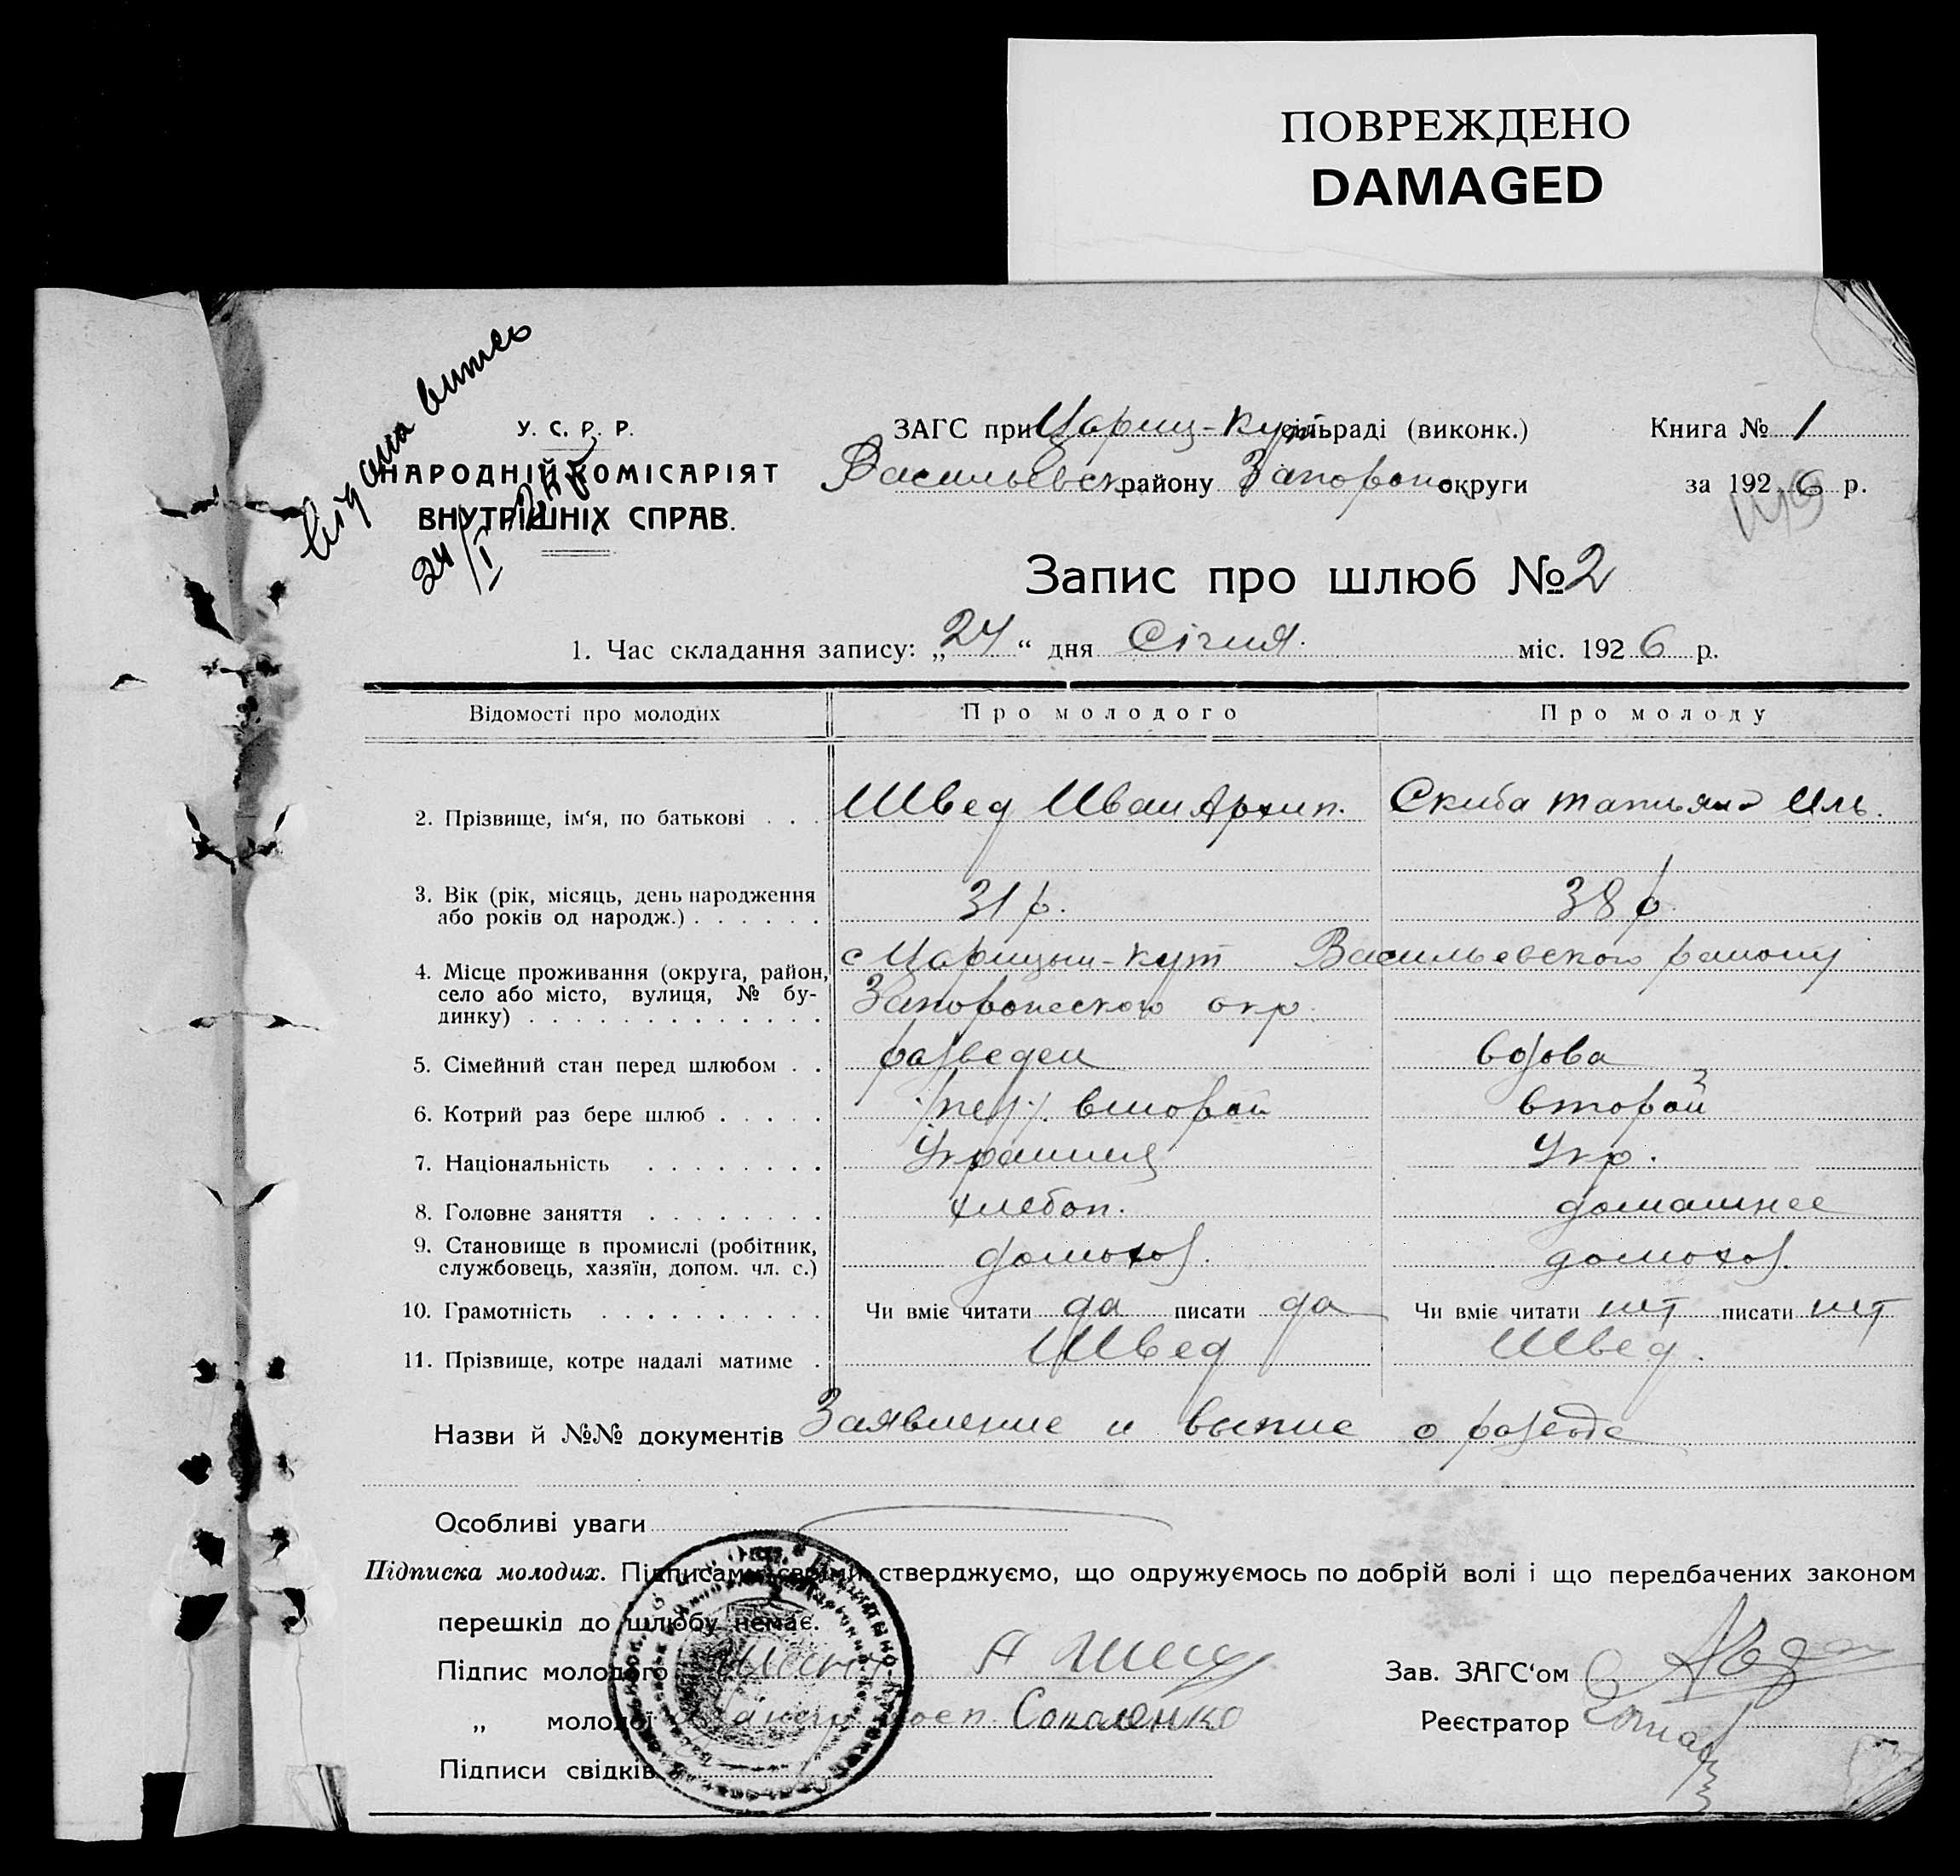 ПОВРЕЖДЕНО
DAMAGED
Видана витес
24/I
У. С. Р. Р.
НАРОДНІЙ КОМІСАРІЯТ
ВНУТРІШНІХ СПРАВ.
ЗАГС при Цариц-Кут сільраді (виконк.)
Васильевск району Запорож округи
Книга № 1
за 1926 р.
Запис про шлюб № 2
1. Час складання запису: „24“ дня Січня міс. 1926 р.
Відомості про молодих Про молодого Про молоду
2. Прізвище, ім‘я, по батькові . . . Швед Иван Архип. Скиба Татьяна Иль.
3. Вік (рік, місяць, день народження
або років од народж.) . . . . . . 31 р. 38 р
4. Місце проживання (округа, район, с Царицын-Кут Васильевского району
село або місто, вулиця, № бу- Запорожеского окр.
динку) . . . . . . . . . . . . .
5. Сімейний стан перед шлюбом . . разведен вдова
6. Котрий раз бере шлюб . . . . . второй второй
7. Національність . . . . . . . . Украинец Укр.
8. Головне заняття . . . . . . . . хлебоп. домашнее
9. Становище в промислі (робітник,
службовець, хазяїн, допом. чл. с.) домохоз. домохоз.
10. Грамотність . . . . . . . . . . Чи вміє читати да писати да Чи вміє читати нет писати нет
11. Прізвище, котре надалі матиме . Швед Швед.
Назви й №№ документів Заявление и выпис о разводе
Особливі уваги
Підписка молодих. Підписами своїми стверджуємо, що одружуємось по добрій волі і що передбачених законом
перешкід до шлюбу немає.
Підпис молодого
„ молодої Соколенко
Підписи свідків
Зав. ЗАГС‘ом
Реєстратор